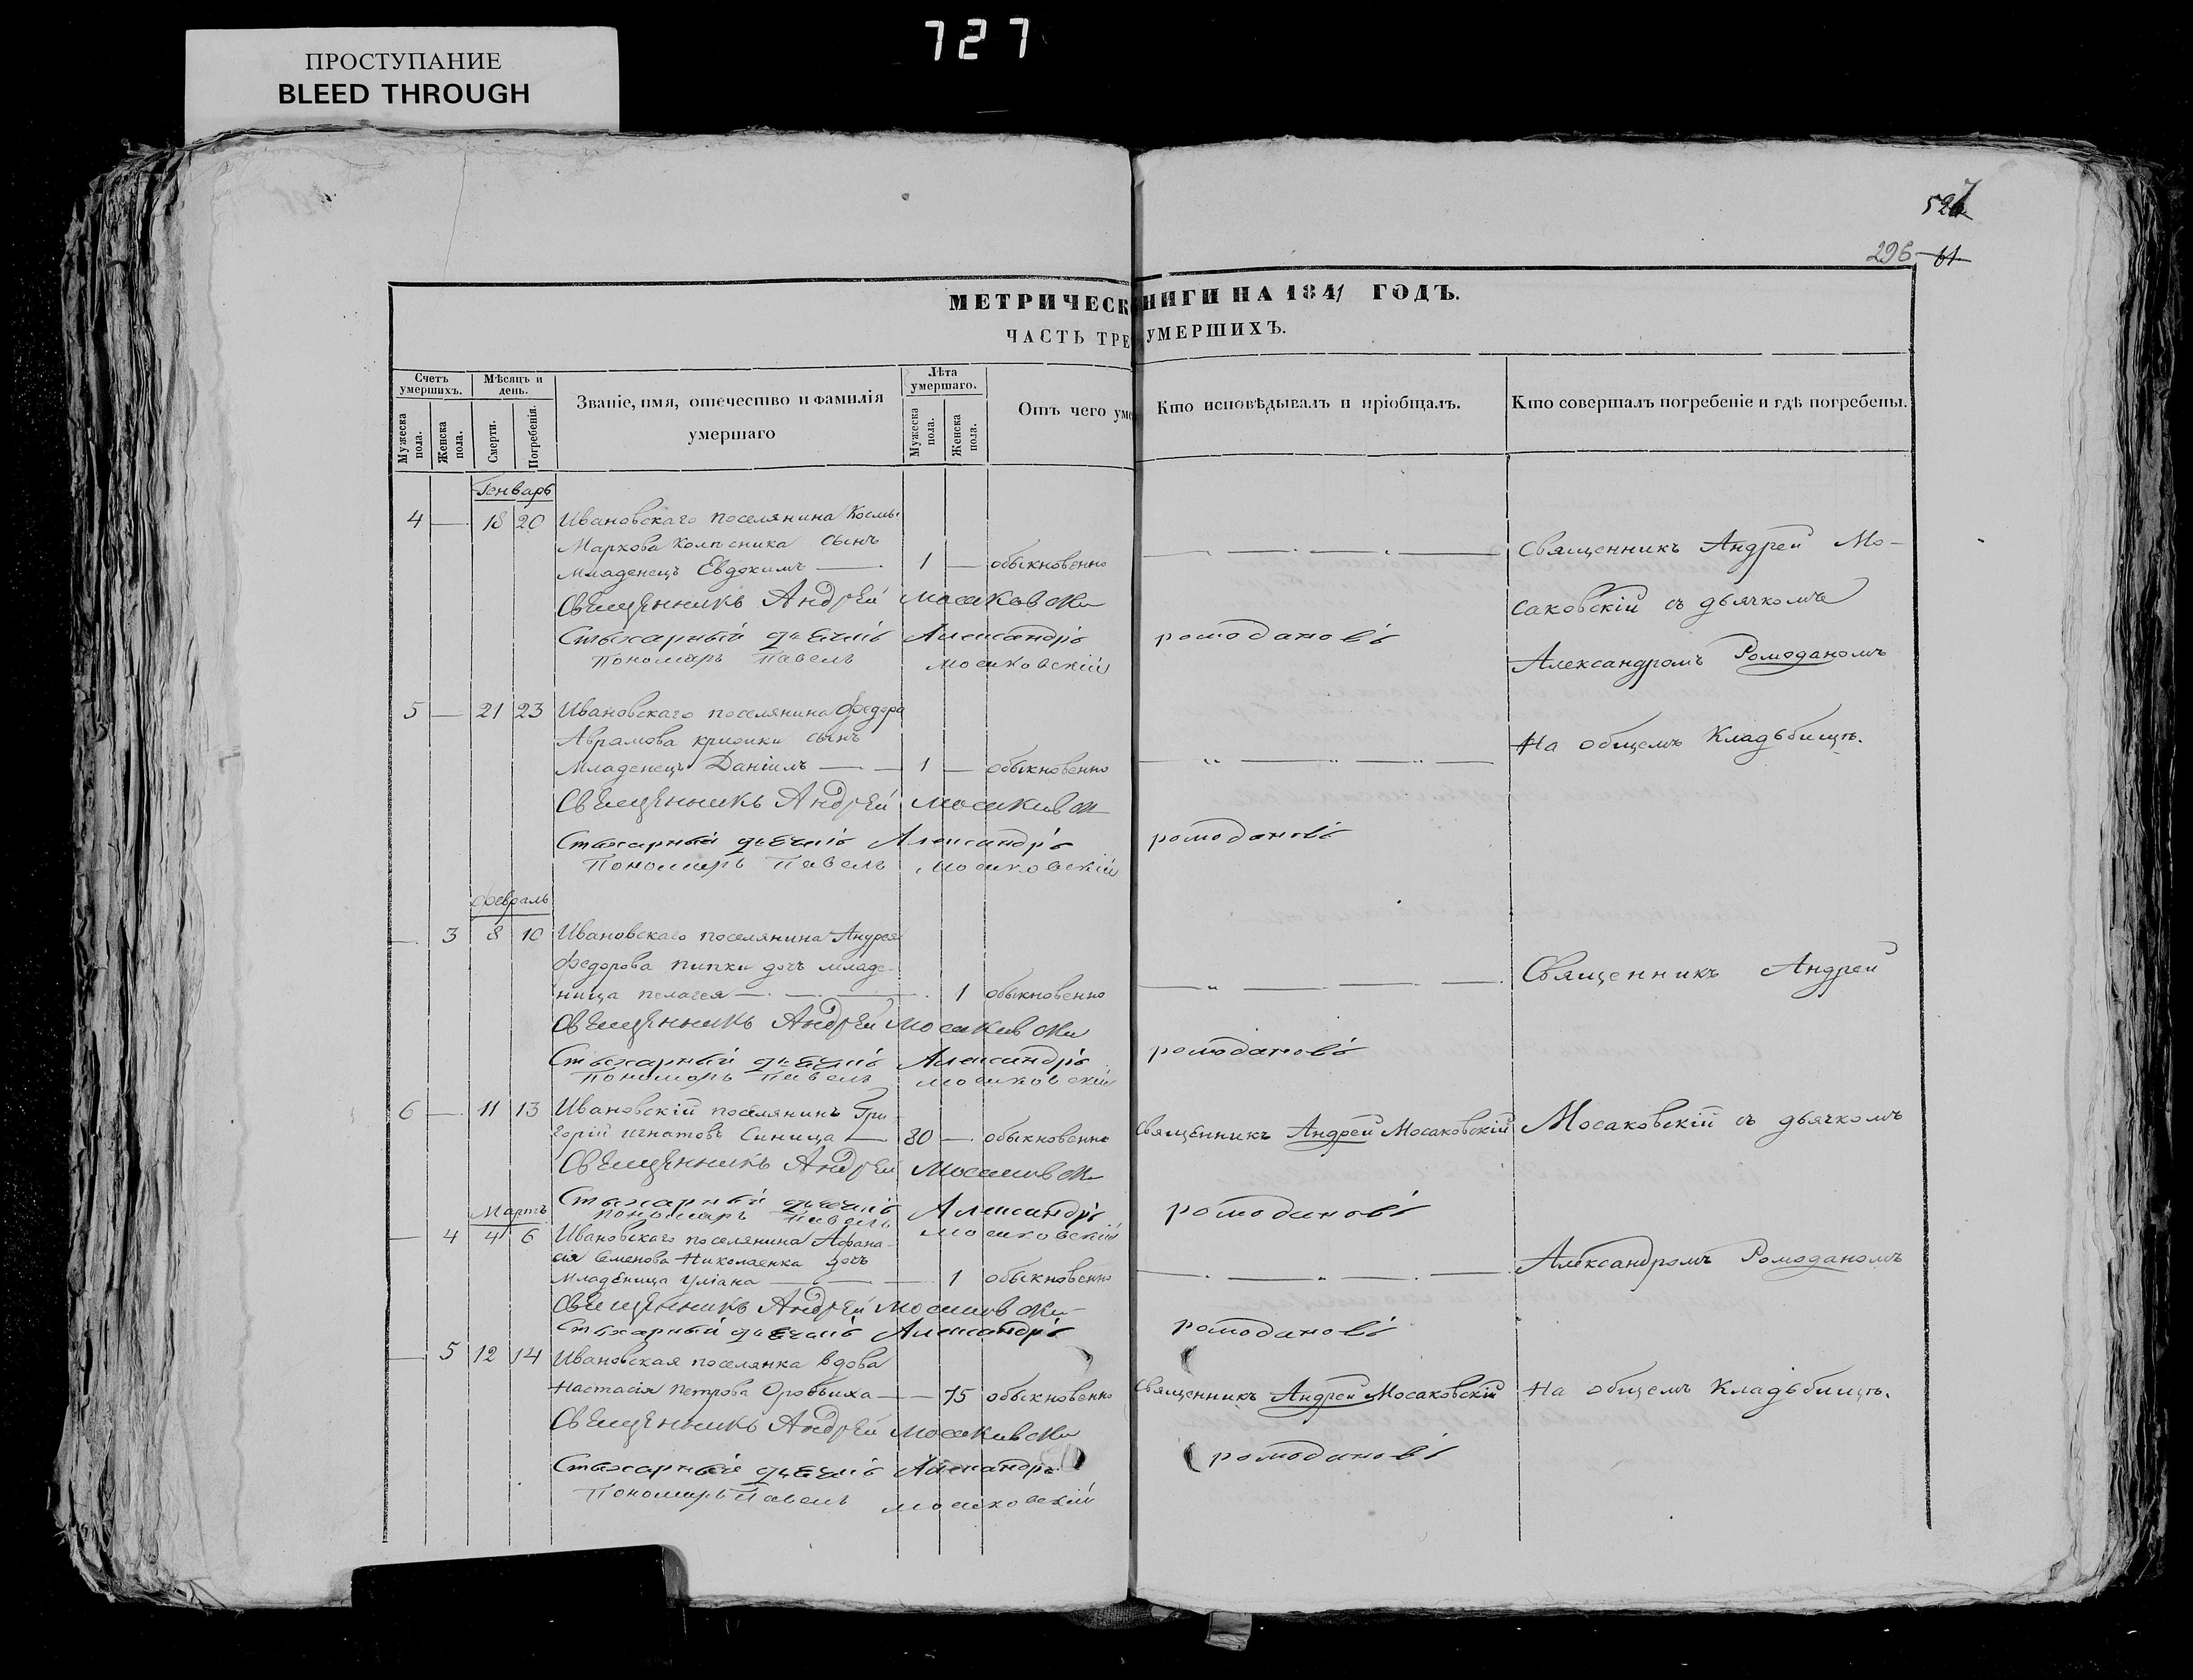 727
ПРОСТУПАНИЕ
BLEED THROUGH
527
296 61
МЕТРИЧЕСК НИГИ НА 1841 ГОДЪ.
ЧАСТЬ ТРЕ УМЕРШИХЪ.
Счетъ умершихъ.
Мужеска пола.
Женска пола.
Мѣсяцъ и день.
Смерти.
Погребенія.
Званіе, имя, отечество и фамилія
умершаго
Лѣта умершаго.
Мужеска пола.
Женска пола.
Отъ чего уме
Кто исповѣдывалъ и пріобщалъ.
Кто совершалъ погребеніе и гдѣ погребены.
Генварь
4 — 18 20 Ивановскаго поселянина Космы
Маркова Колесника сынъ
младенецъ Евдокимъ — 1 — обыкновенно
Священникъ Андрей Мо-
Свещенникъ Андрей Мосаковски
саковскій съ дьячкомъ
Стихарный дьячокъ Александръ ромодановъ
Пономарь Павелъ мосаковскій
Александромъ Ромоданомъ
5 — 21 23 Ивановскаго поселянина Федора
Аврамова сынъ
На общемъ Кладьбищѣ.
Младенецъ Даніилъ — 1 — обыкновенно
Свещенникъ Андрей мосаковски
Стихарный дьячокъ Александръ ромодановъ
Пономарь Павелъ мосаковскій
Февраль
— 3 8 10 Ивановскаго поселянина Андрея
Федорова пипки дочь младе-
ница пелагея — 1 обыкновенно
Священникъ Андрей
Свещенникъ Андрей мосаковски
Стихарный дьячокъ Александръ ромодановъ
Пономарь Павелъ мосаковскій
6 — 11 13 Ивановскій поселянинъ Гри-
горій игнатовъ Синица — 80 — обыкновенно Священникъ Андрей Мосаковскій
Мосаковскій съ дьячкомъ
Свещенникъ Андрей мосаковски
Стихарный дьячокъ Александръ ромодановъ
Пономарь Павелъ мосаковскій
Мартъ
— 4 4 6 Ивановскаго поселянина Афана-
сія Семенова Николаенка дочь
младеница Уліана — 1 обыкновенно
Александромъ Ромоданомъ
Свещенникъ Андрей мосаковски
Стихарный дьячокъ Александръ ромодановъ
— 5 12 14 Ивановская поселянка вдова
Настасія петрова — 75 обыкновенно Священникъ Андрей Мосаковскій
На общемъ Кладьбищѣ.
Свещенникъ Андрей мосаковски
Стихарный дьячокъ Александръ ромодановъ
Пономарь Павелъ мосаковскій